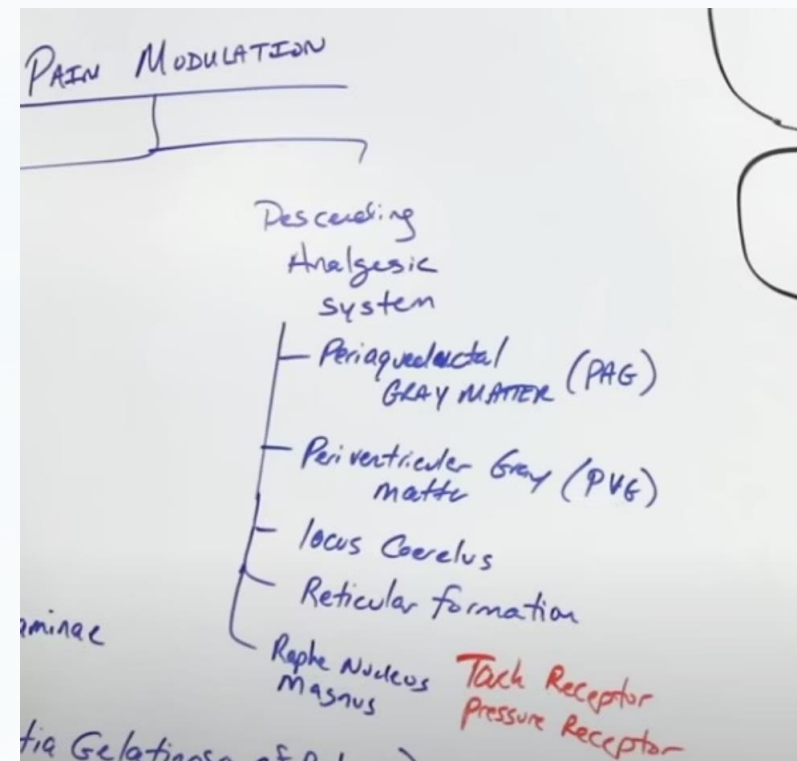 PAIN MODULATION
Descending
Analgesic
system
Periaqueductal
GRAY MATTER (PAG)
Periventricular Gray (PVG)
matter
locus Coerelus
Reticular formation
aminae
Raphe Nucleus
Magnus
Tach Receptor
Pressure Receptor
tia Gelatinosa of